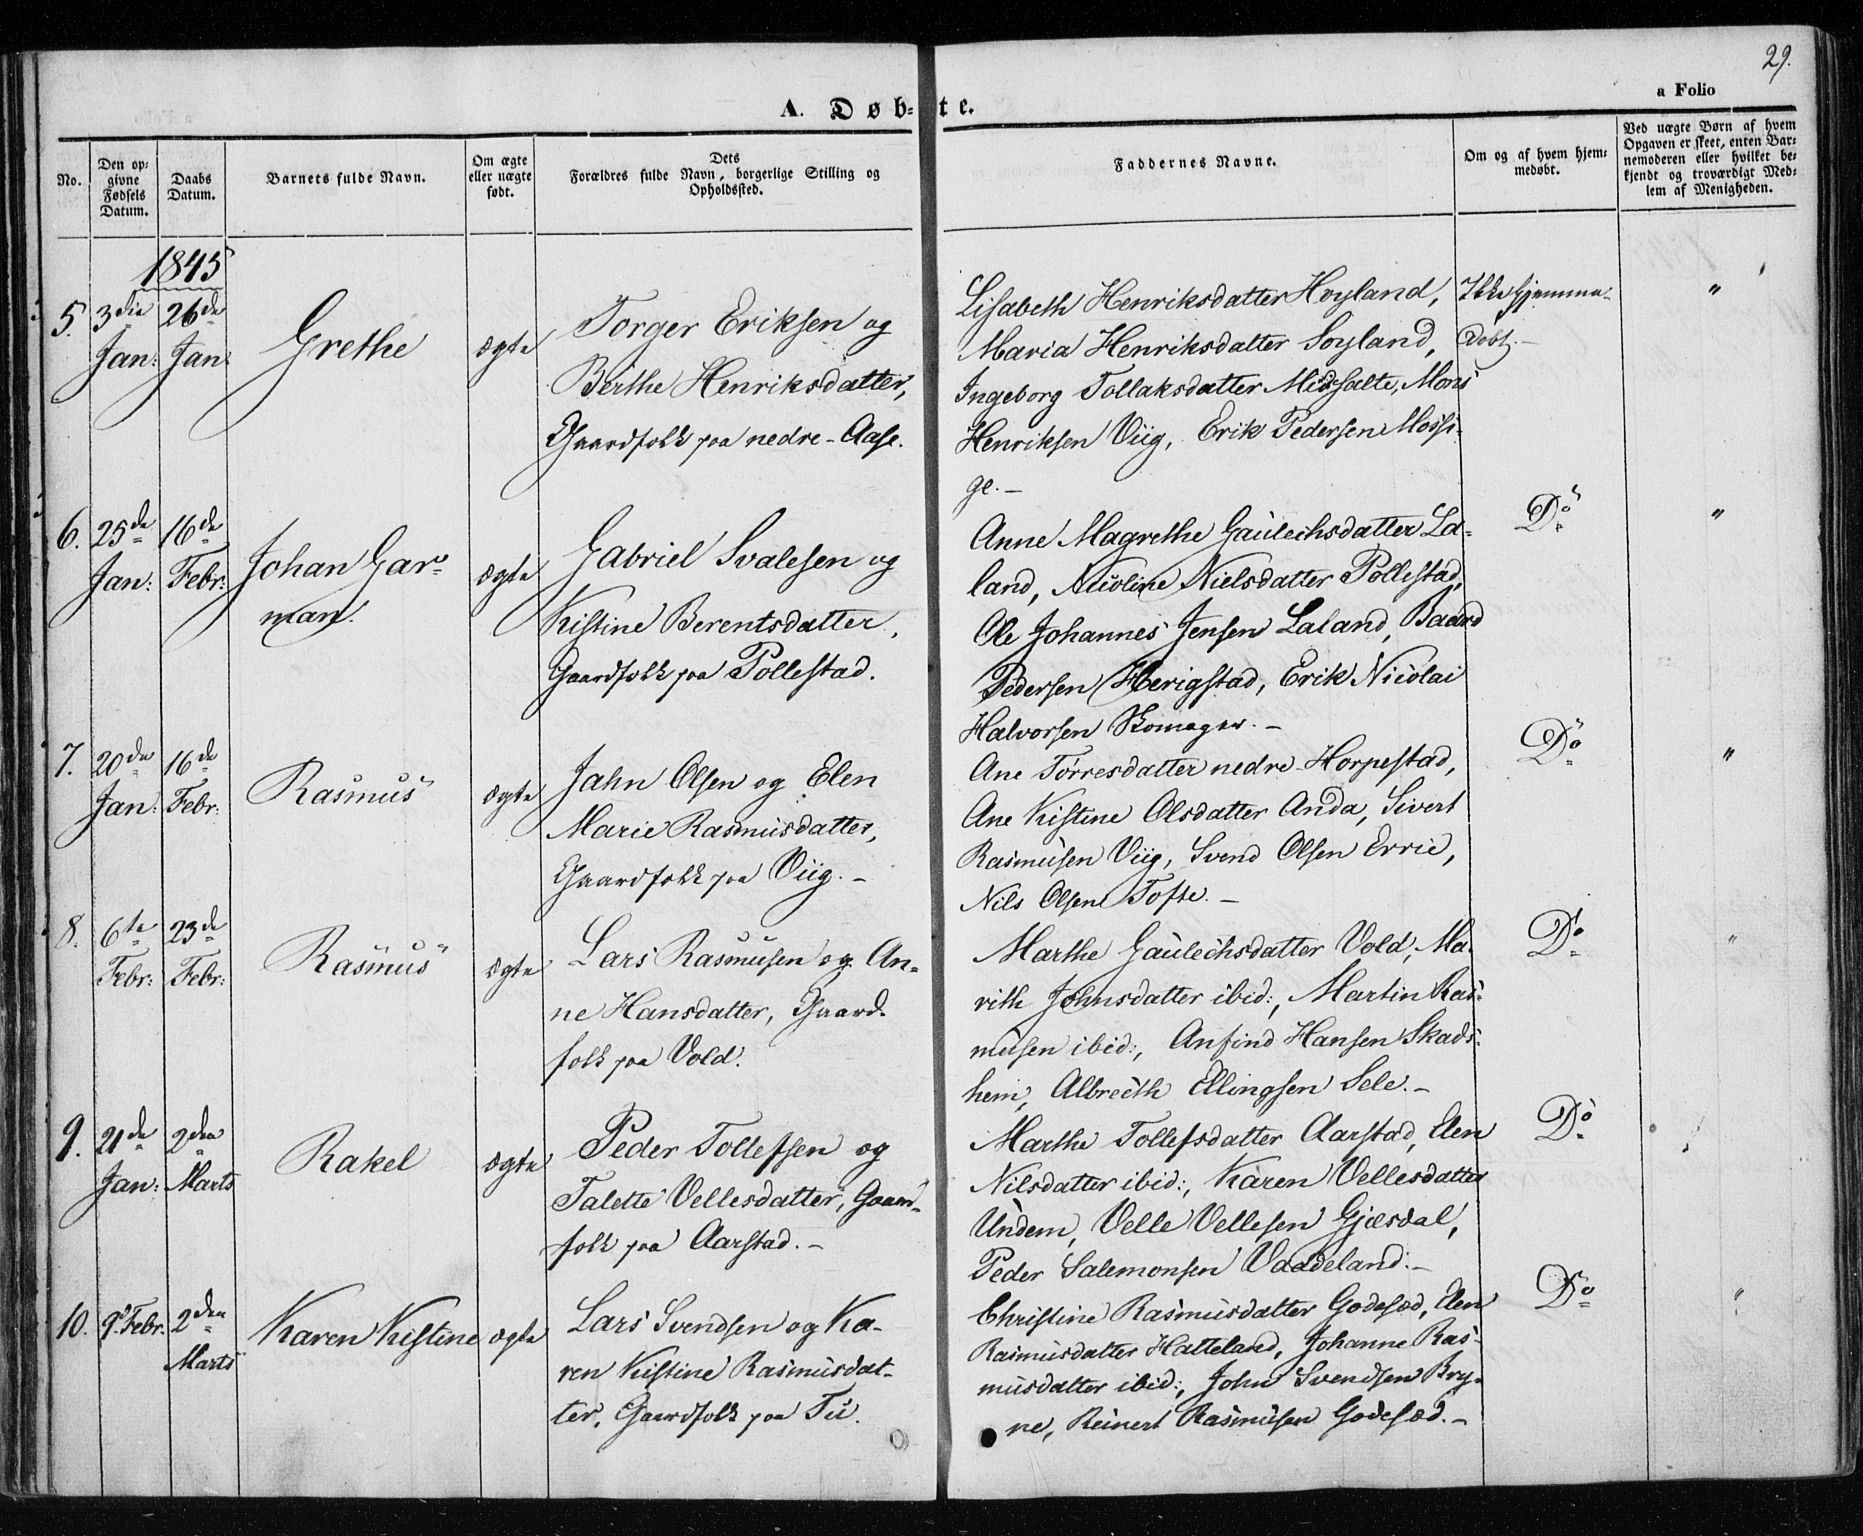 29.
a Folio
A. Døb-te.
No.
Den op-
givne
Fødsels
Datum.
Daabs
Datum.
Barnets fulde Navn.
Om ægte
eller uægte
født.
Dets
Forældres fulde Navn, borgerlige Stilling og
Opholdssted.
Faddernes Navne.
Om og af hvem hjem-
medøbt.
Ved uægte Børn af hvem
Opgaven er skeet, enten Bar-
nemoderen eller hvilket be-
kjendt og troværdigt Med-
lem af Menigheden.
1845
5.
3die
Jan:
26de
Jan:
Grethe
ægte
Torger Eriksen og
Berthe Henriksdatter,
Gaardfolk paa nedre-Aase.
Lisabeth Henriksdatter Høyland,
Maria Henriksdatter Soyland,
Ingeborg Tollaksdatter Midsalte, Mons
Henriksen Viig, Erik Pedersen Mossi-
ge.-
Ikke hjemme-
døbt.-
"
6.
25de
Jan:
16de
Febr:
Johan Gar-
man.
ægte
Gabriel Svalesen og
Kistine Berentsdatter,
Gaardfolk paa Pollestad.
Anne Magrethe Gaulechsdatter La-
land, Nicoline Nielsdatter Pollestad,
Ole Johannes Jensen Laland, Baard
Pedersen Herigstad, Erik Nicolai
Halvorsen Skomager.-
Do
"
7.
20de
Jan:
16de
Febr:
Rasmus
ægte
Jahn Olsen og Elen
Marie Rasmusdatter,
Gaardfolk paa Viig.-
Ane Torresdatter nedre-Horpestad,
Ane Kistine Olsdatter Anda, Sivert
Rasmusen Viig, Svend Olsen Errie,
Nils Olsen Tofte.-
Do
"
8.
6te
Febr:
23de
Febr:
Rasmus
ægte
Lars Rasmusen og An-
ne Hansdatter, Gaard-
folk paa Vold.
Marthe Gaulechsdatter Vold, Ma-
rith Johnsdatter ibid:, Martin Ras-
musen ibid:, Anfind Hansen Skads-
hem, Albrecth Ellingsen Sele.-
Do
"
9.
21de
Jan:
2den
Marts
Rakel
ægte
Peder Tollefsen og
Talette Vellesdatter, Gaard-
folk paa Aarstad.-
Marthe Tollefsdatter Aarstad, Elen
Nilsdatter ibid:, Karen Vellesdatter
Undem, Velle Vellesen Gjesdal,
Peder Salemonsen Vaadeland.-
Do
10.
9de Febr.
2den
Marts
Karen Kistine
ægte
Lars Svendsen og Ka-
ren Kistine Rasmusdat-
ter, Gaardfolk paa Tu.
Christine Rasmusdatter Godesæd, Elen
Rasmusdatter Hatteland, Johanne Ras-
musdatter ibid:, John Svendsen Bry-
ne, Reinert Rasmusen Godesæd.-
Do
"